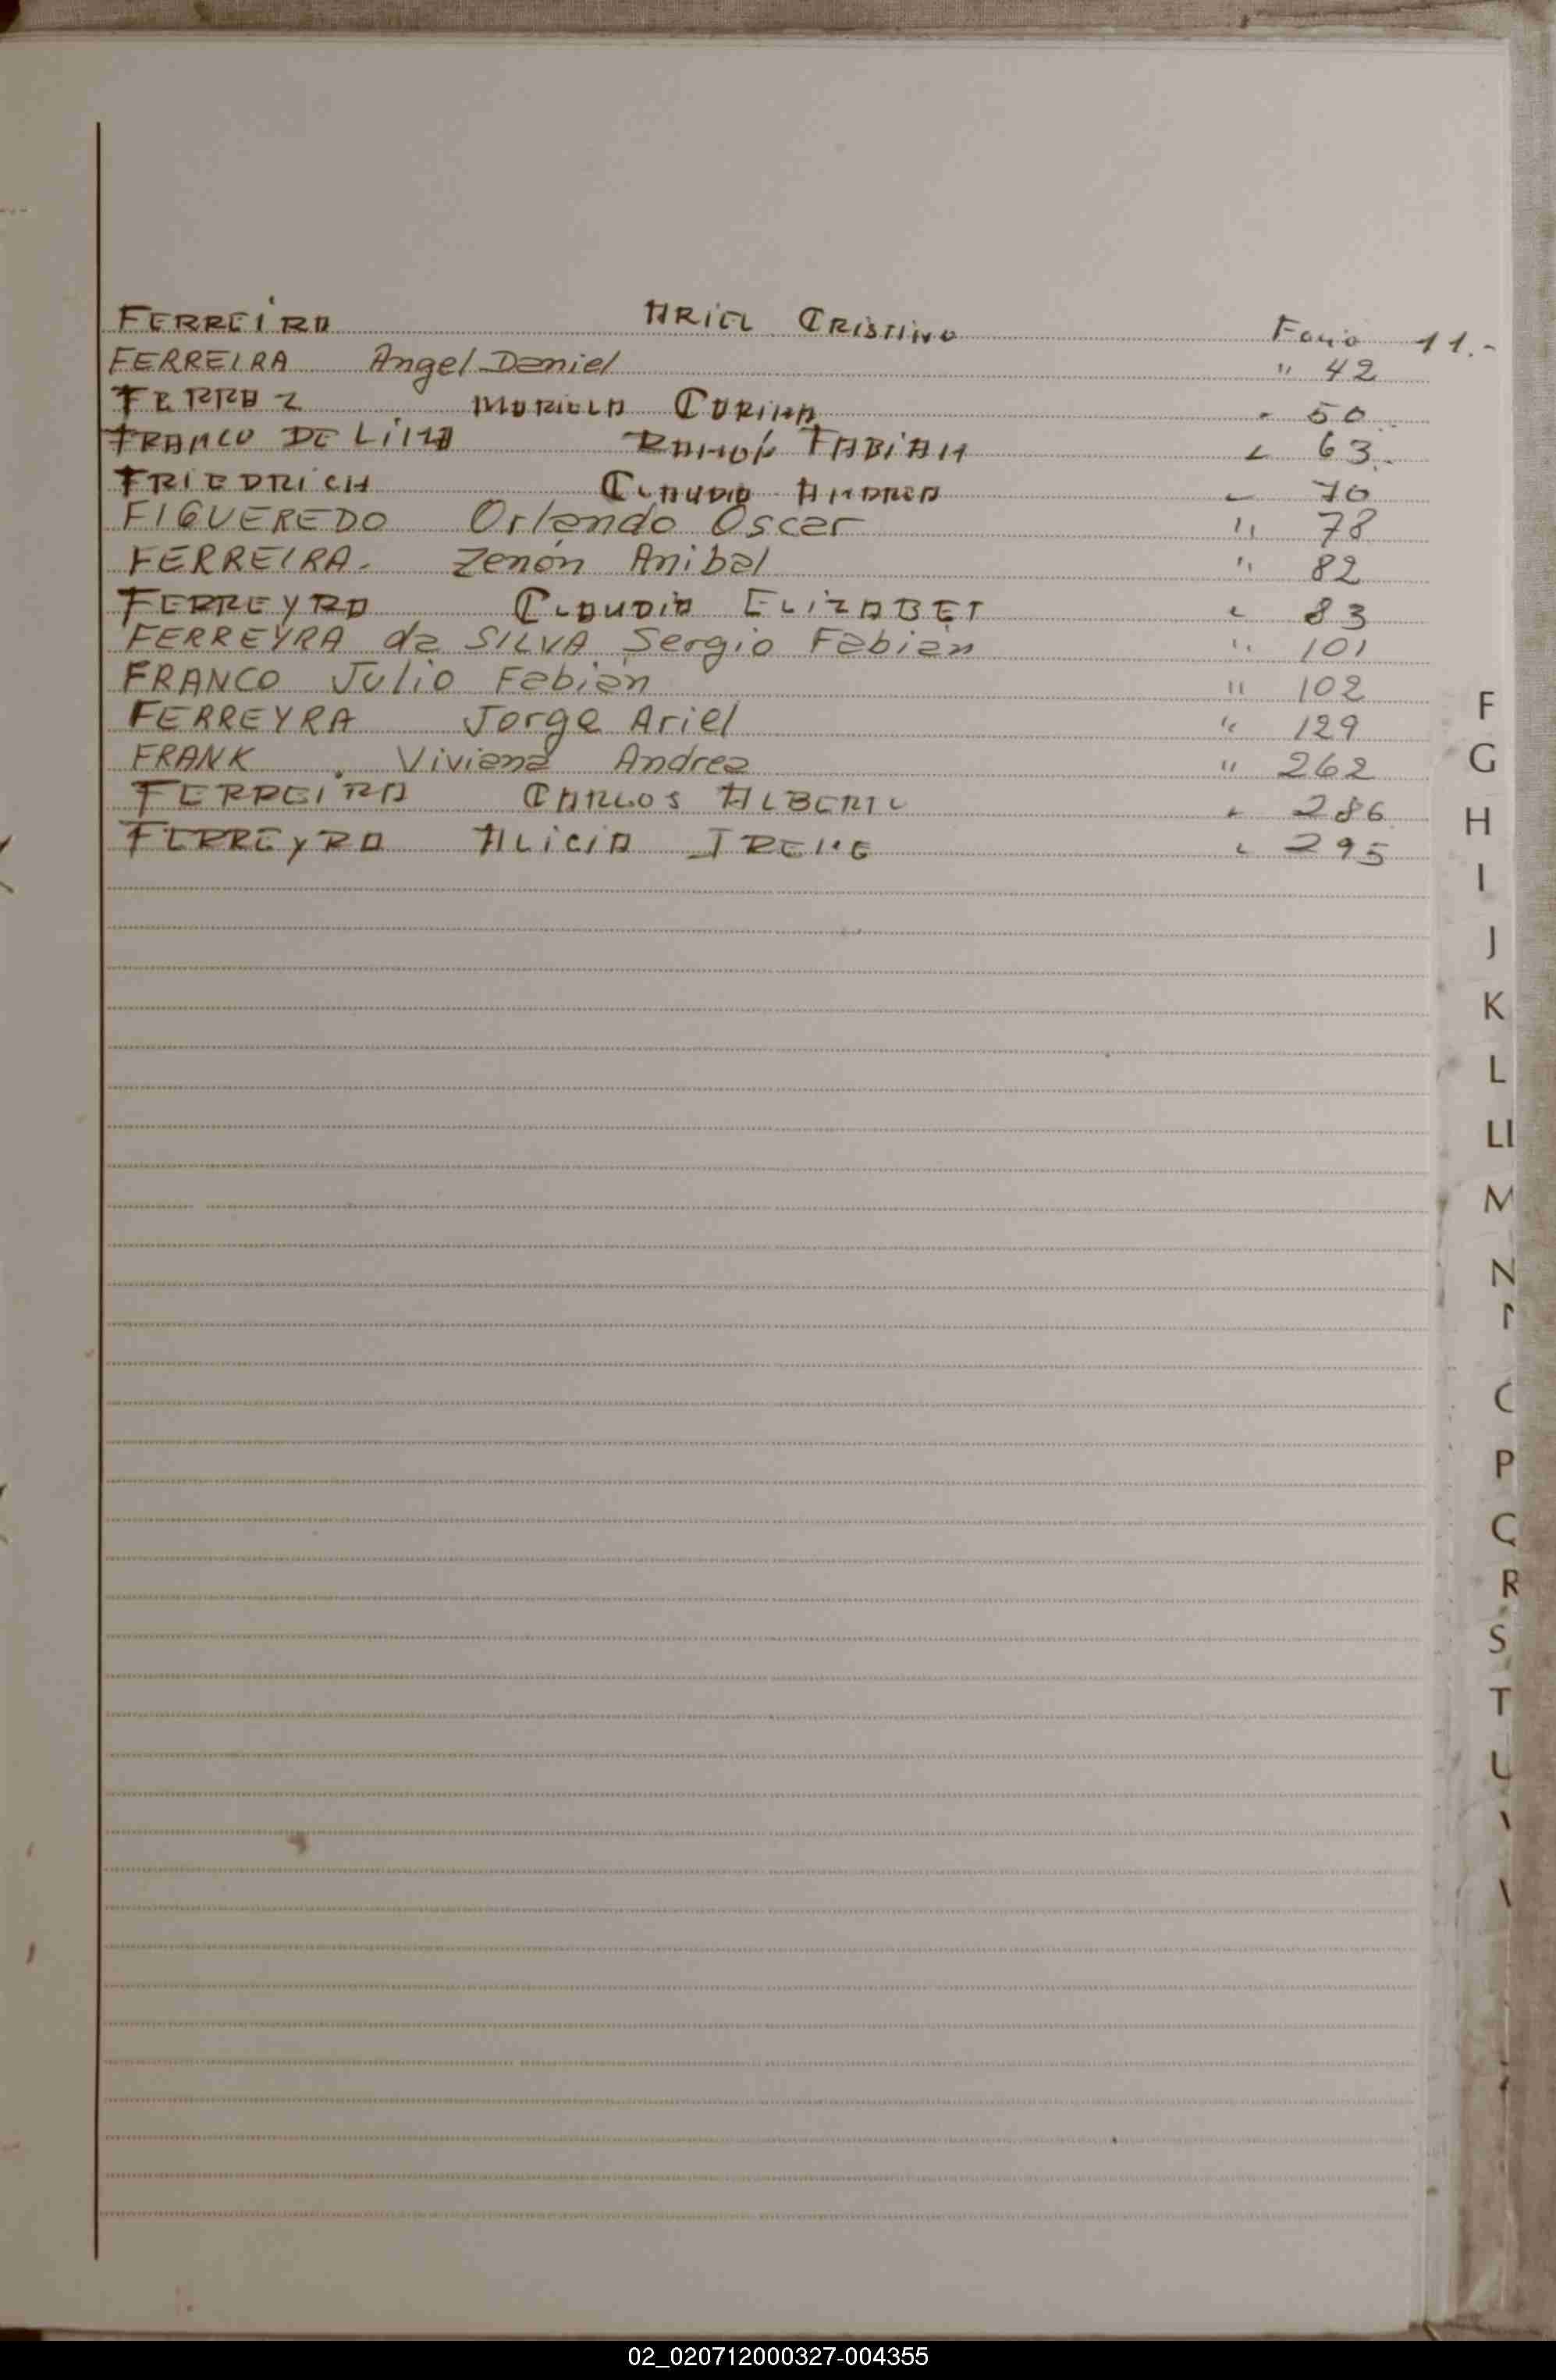 FERREIRA ARIEL CRISTINO Folio 11.-
FERREIRA Angel Daniel " 42
FERRAZ MARIELA CARINA " 50
FRANCO DE LIMA RAMON FABIAN " 63.-
FRIEDRICH CLAUDIA ANDREA " 70
FIGUEREDO Orlando Oscar " 78
FERREIRA. Zenón Anibal " 82
FERREYRA CLAUDIA ELIZABET " 83
FERREYRA da SILVA Sergio Fabián " 101
FRANCO Julio Fabián " 102
FERREYRA Jorge Ariel " 129
FRANK Viviana Andrea " 262
FERREIRA CARLOS ALBERTO " 286
FERREYRA ALICIA IRENE " 295
F
G
H
I
J
K
L
Ll
M
N
P
R
S
T
02_020712000327-004355